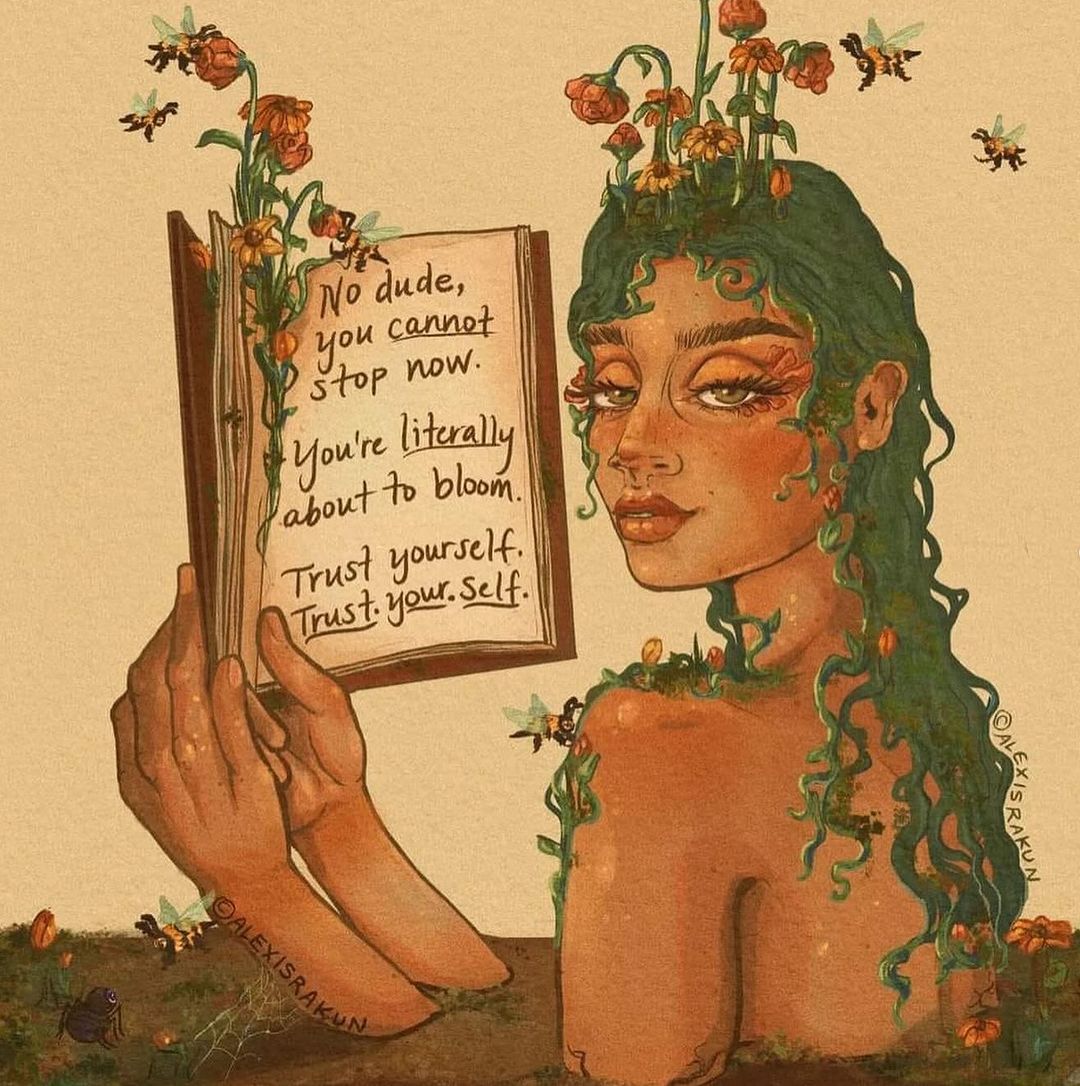 No dude,
you cannot
stop now.
You're literally
about to bloom.
Trust yourself.
Trust. your. self.
©ALEXISRAKUN
©ALEXISRAKUN